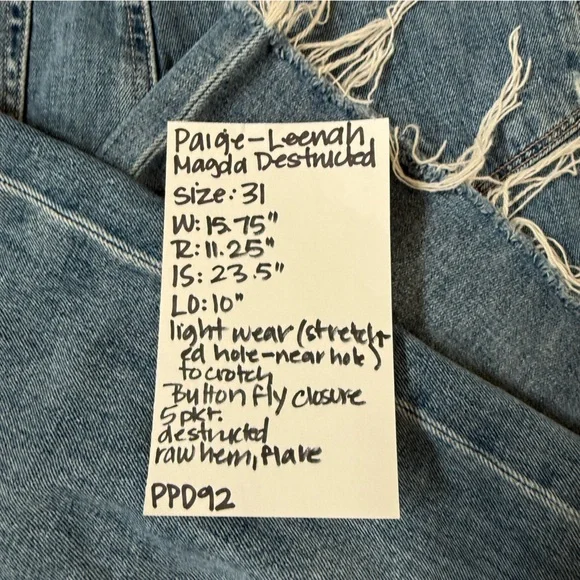 Paige-Leenah
Magda Destructed
Size: 31
W: 15.75"
R: 11.25"
IS: 23.5"
LO: 10"
light wear (stretch-
ed hole-near hole)
to crotch
Button fly closure
5 pkt.
destructed
raw hem, flare
PPD92